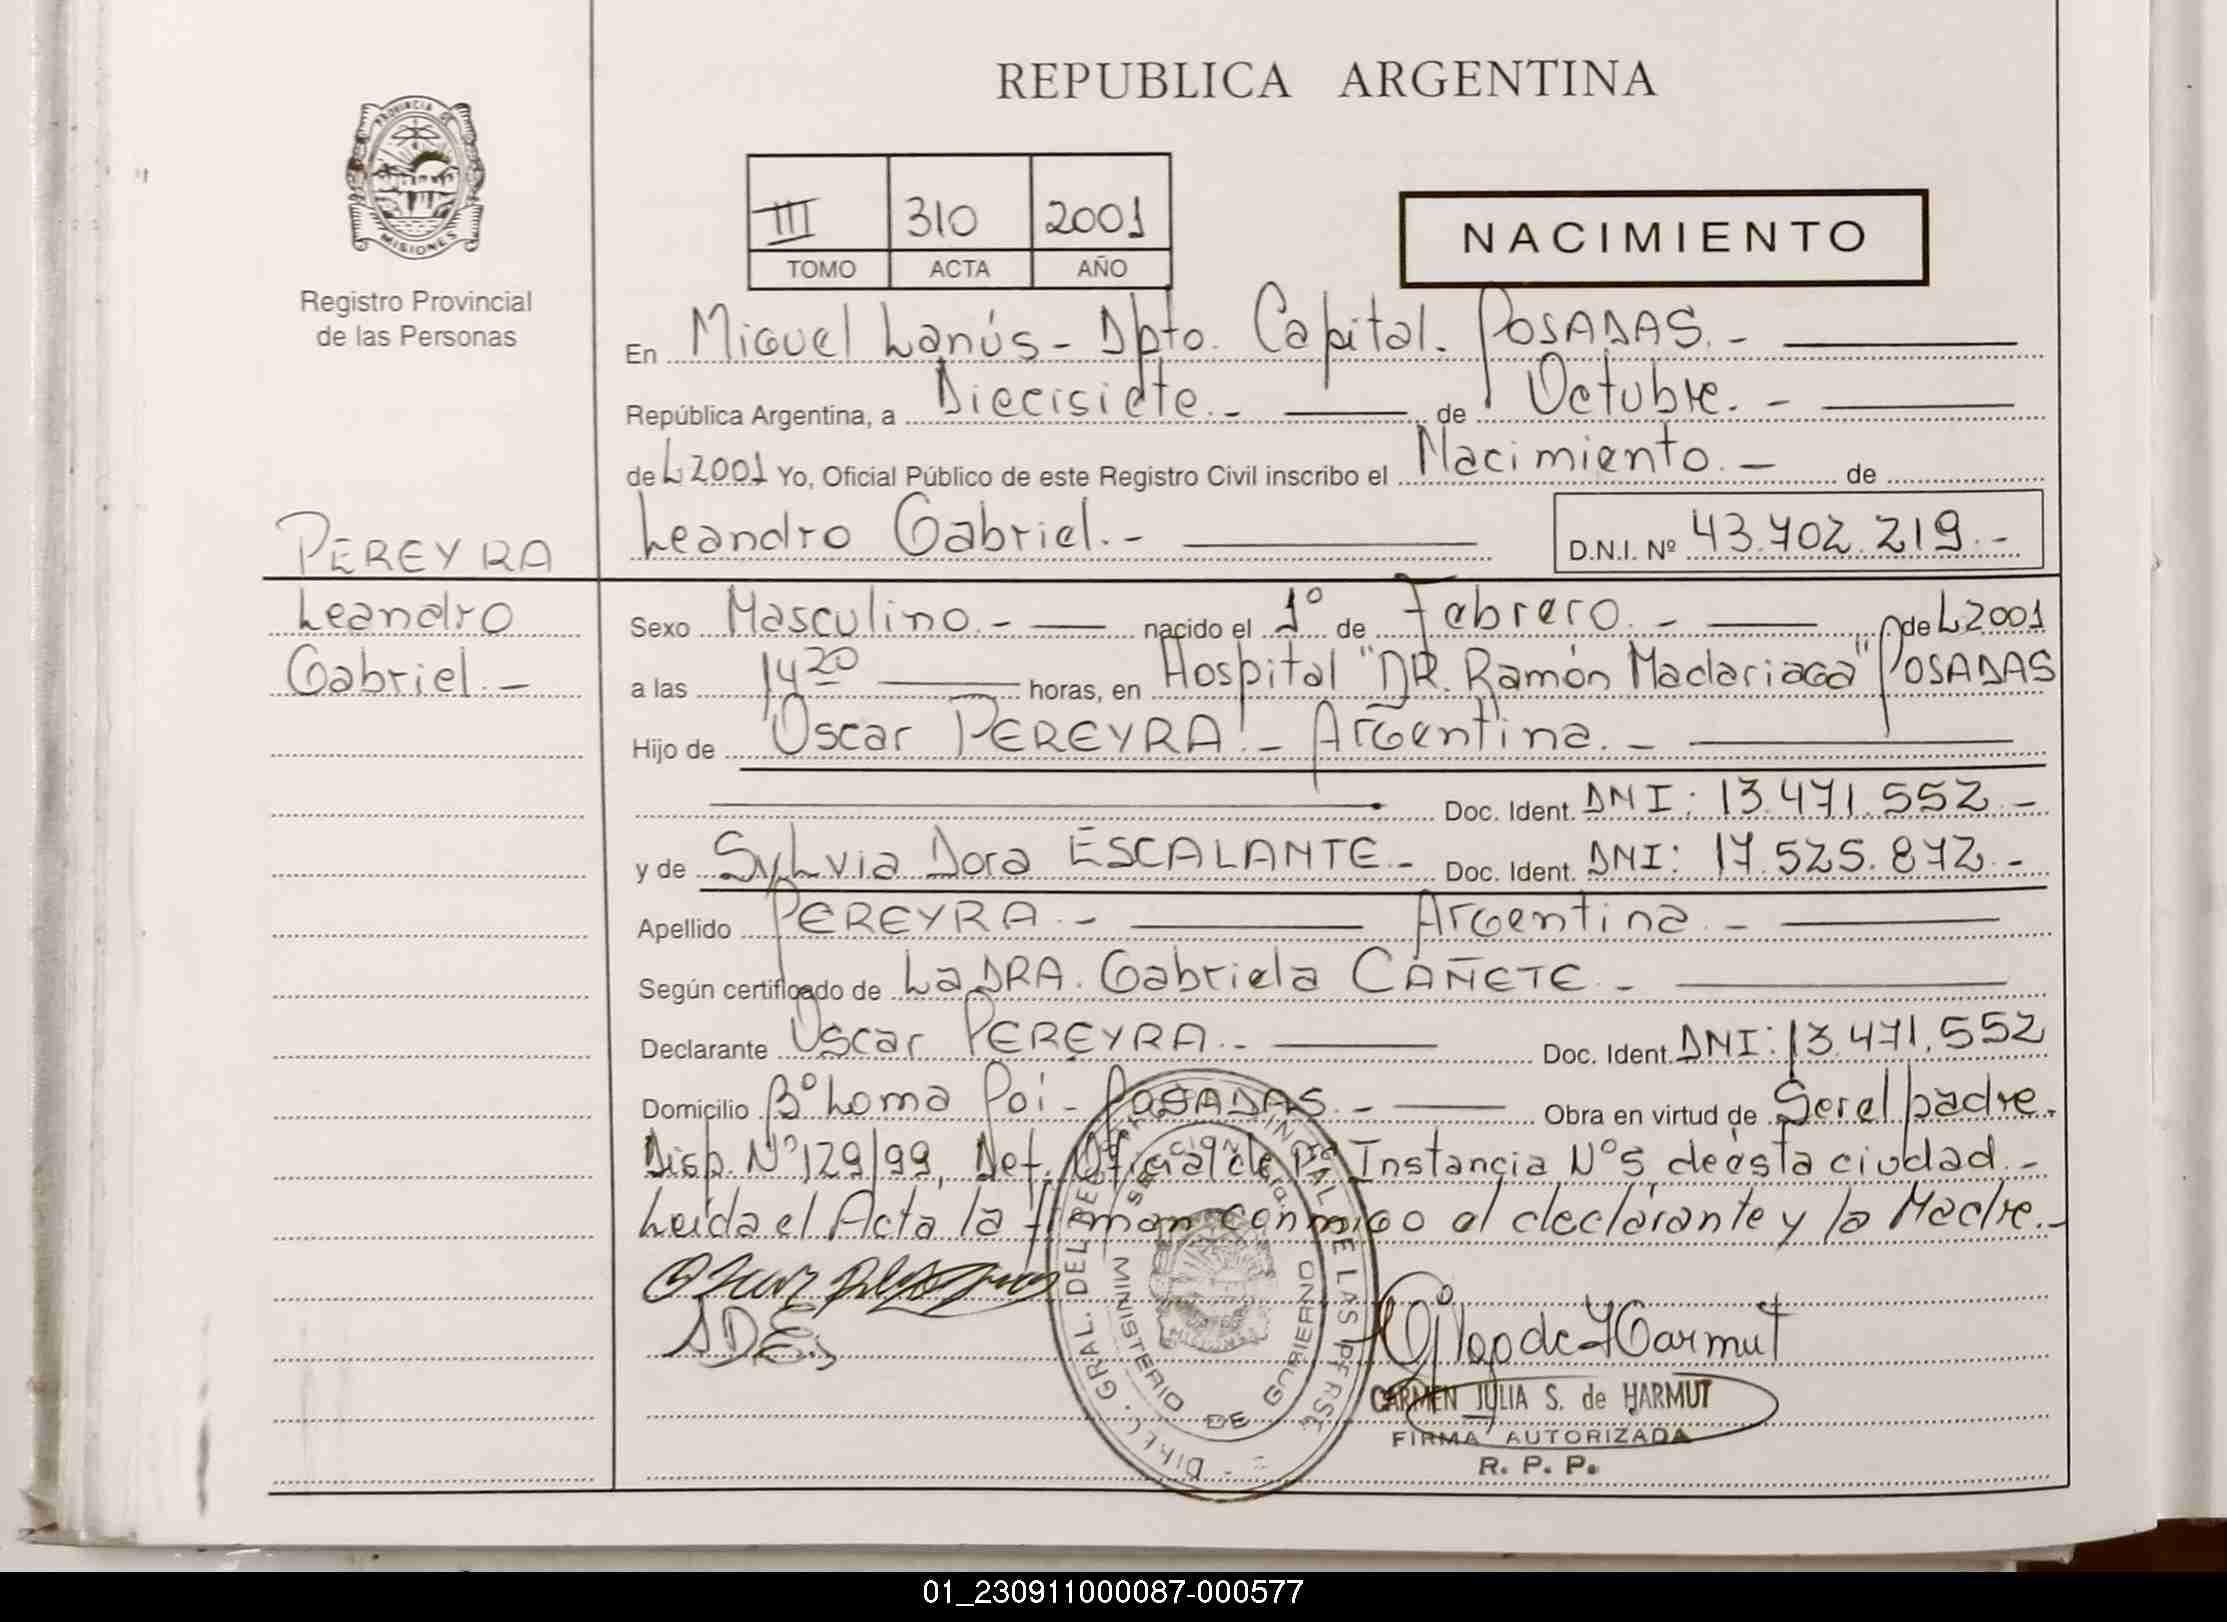 REPUBLICA ARGENTINA
PROVINCIA DE
MISIONES
Registro Provincial
de las Personas
III 310 2001
TOMO ACTA AÑO
NACIMIENTO
En Miguel Lanús - Dpto. Capital. POSADAS. -
República Argentina, a Diecisiete. - de Octubre. -
de L 2001 Yo, Oficial Público de este Registro Civil inscribo el Nacimiento. - de
Leandro Gabriel. - D.N.I. Nº 43.702.219. -
PEREYRA
Leandro
Gabriel. -
Sexo Masculino. - nacido el 1º de Febrero. - de L 2001
a las 14 20 horas, en Hospital "DR. Ramón Madariaga" POSADAS
Hijo de Oscar PEREYRA. - Argentina. -
Doc. Ident. DNI: 13.471.552. -
y de Sylvia Dora ESCALANTE. - Doc. Ident. DNI: 17.525.872. -
Apellido PEREYRA. - Argentina. -
Según certificado de La DRA. Gabriela CAÑETE. -
Declarante Oscar PEREYRA. - Doc. Ident. DNI: 13.471.552
Domicilio Bº Loma Poi - POSADAS. - Obra en virtud de Ser el padre.
Disp. Nº 129/99, Def. Oficial de 1ra Instancia Nº 5 de ésta ciudad. -
Leída el Acta la firman conmigo el declarante y la Madre. -
DIREC. GRAL. DEL REG. PROVINCIAL DE LAS PERS.
SECCION 1ra.
MINISTERIO DE GOBIERNO
SDE.
CARMEN JULIA S. de HARMUT
FIRMA AUTORIZADA
R. P. P.
01_230911000087-000577